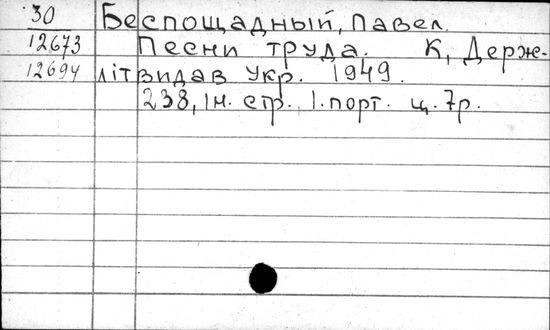 30 Беспощадный, Павел.
12673 Песни труда. К, Держ-
12694 літвидав Укр. 1949.
238, 1н. стр. 1. порт. ц. 7р.